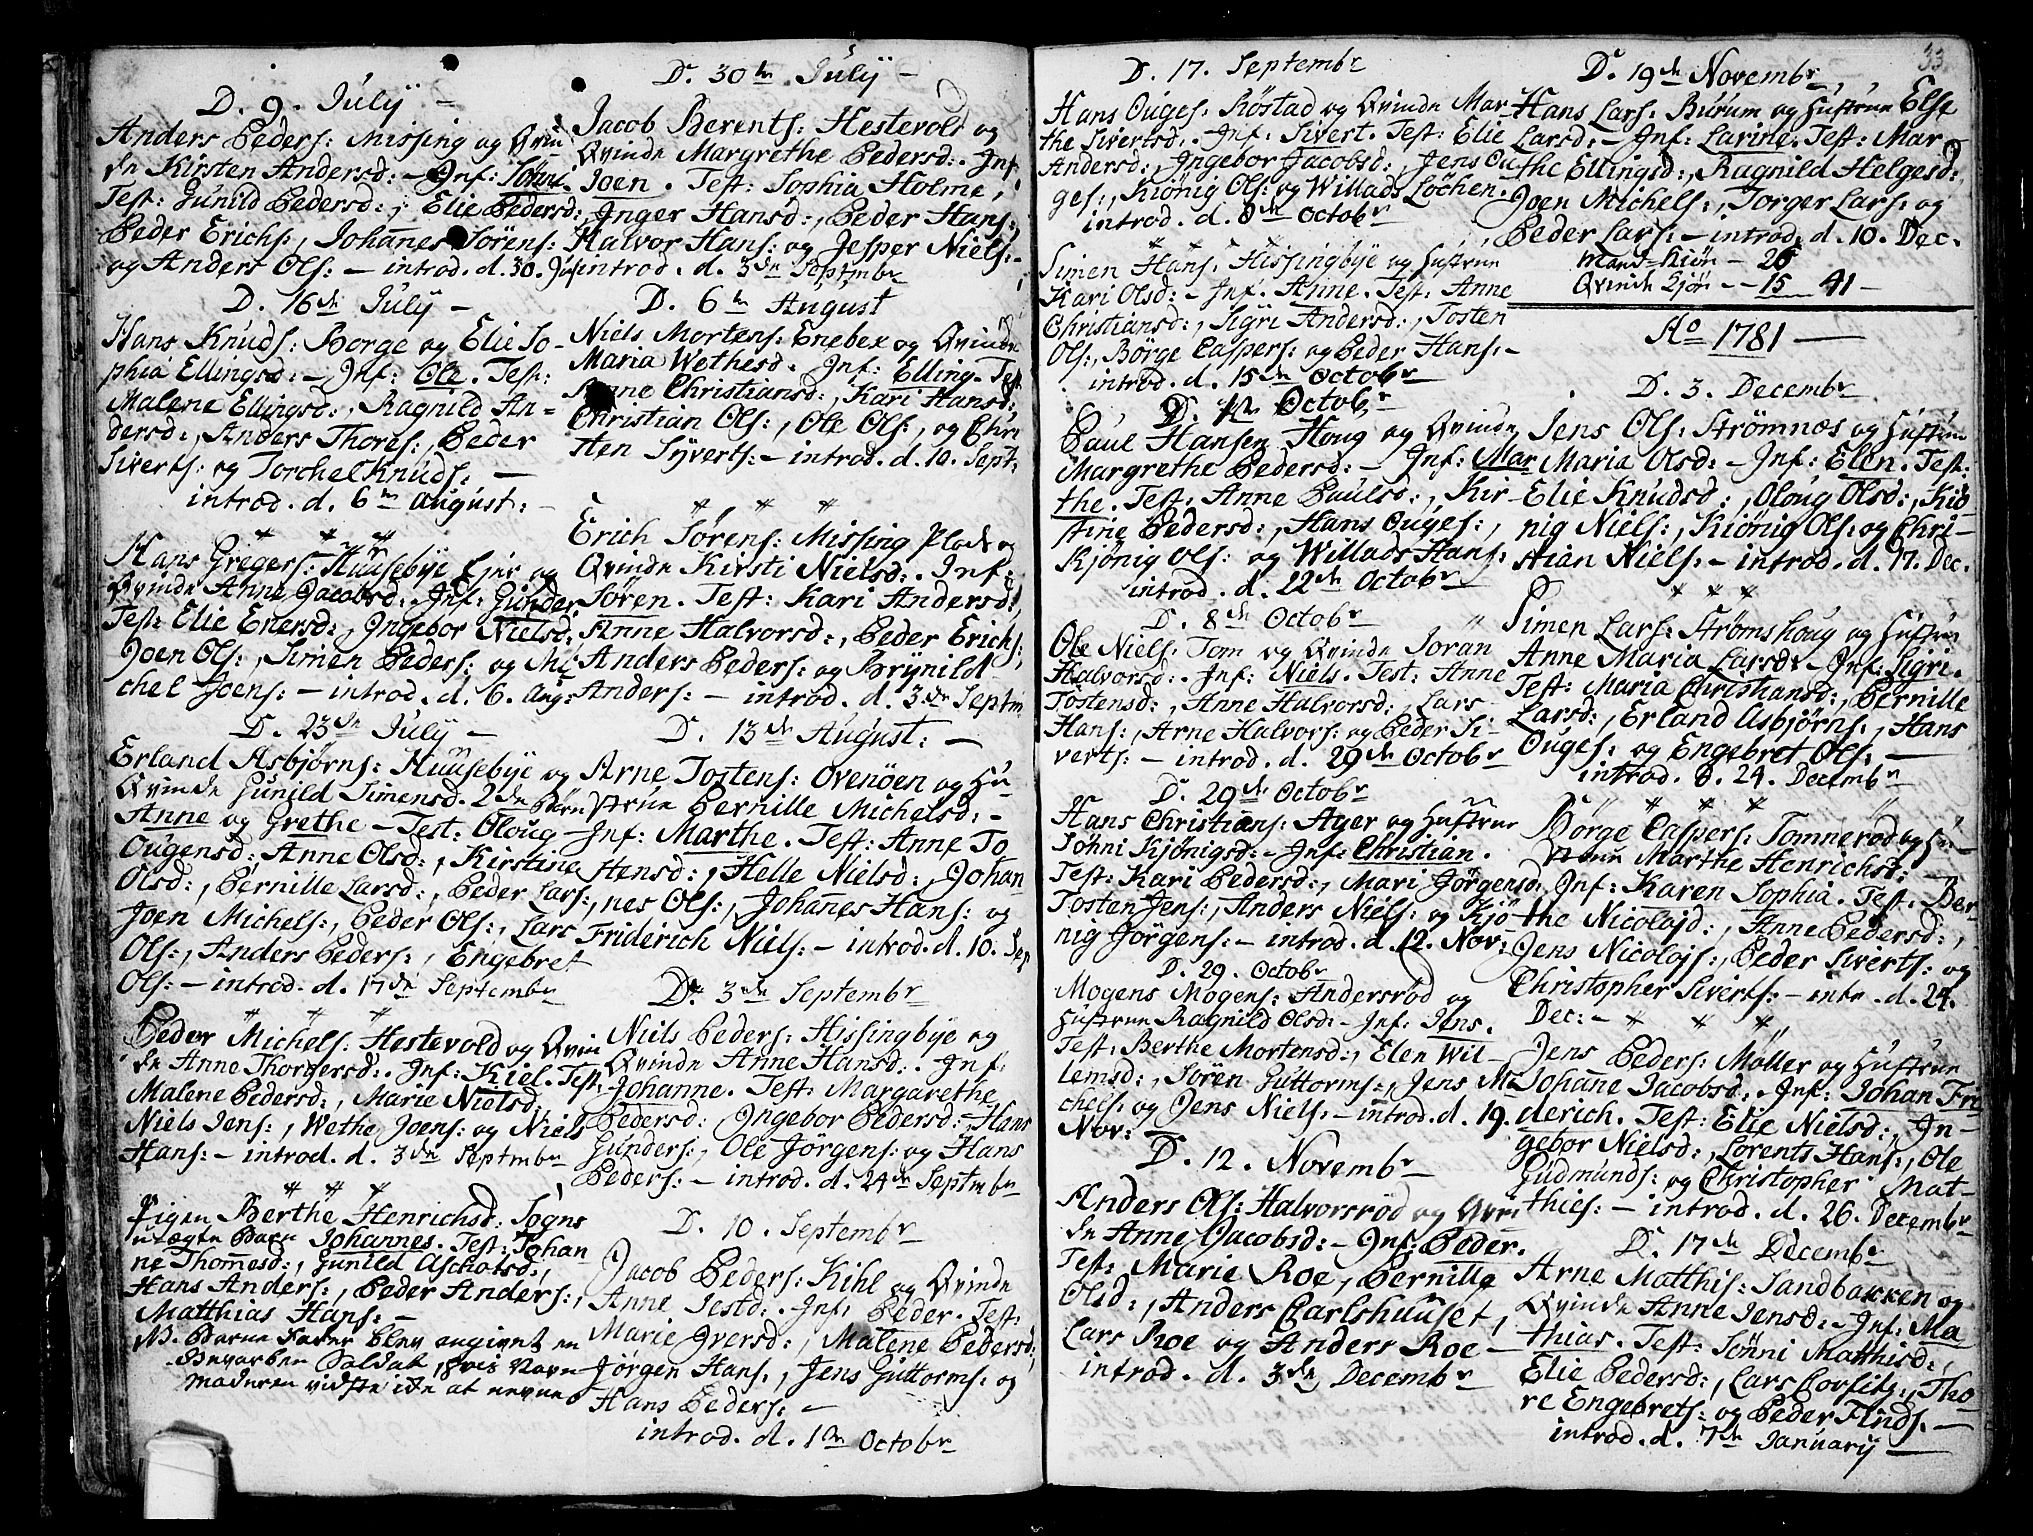 D. 9. Julÿ –
Anders Peders: Missing og Qvin
de Kirsten Andersd: – Inf: Sönni.
Test: Gunild Pedersd:, Elie Pedersd:,
Peder Erichs:, Johannes Sörens:
og Anders Ols: – introd. d. 30. Jul
D. 16de Julÿ –
Hans Knuds: Borge og Elie So-
phia Ellingsd: – Inf: Ole. Test:
Malene Ellingsd:, Ragnild An-
dersd:, Anders Thores:, Peder
Siverts: og Torchel Knuds: –
introd. d. 6te August: –
Hans Gregers: Huusebÿe Ejer og
Qvinde Anne Jacobsd: Inf: Gunder
Test: Elie Enersd:, Ingebor Nielsd:
Joen Ols:, Simen Peders: og Mi
chel Joens: – introd. d. 6. Aug:
D. 23de Julÿ –
Erland Asbjørns: Huusebÿe og
Qvinde Gunild Simensd. 2de Børn
Anne og Grethe – Test: Oloug
Ougensd:, Anne Olsd:, Kirstine
Olsd:, Pernille Larsd:, Peder Lars:,
Joen Michels:, Peder Ols:, Lars
Ols:, Anders Peders:, Engebret
Ols: – introd. d. 17de Septembr
Peder Michels: Hestevold og Qvin
de Anne Thorgersd: Inf: Kiel. Test:
Malene Pedersd:, Marie Nielsd,
Niels Jens:, Wethe Joens: og Niels
Hans: – introd. d. 3de Septmbr
Pigen Berthe Henrichsd: Sogns
uægte Barn Johannes. Test: Johan
ne Thomesd:, Gunild Aschotsd:,
Hans Anders:, Peder Anders:,
Matthias Hans: –
NB. Barne Fader blev angivet en
Gevorben Soldat, hvis Navn
Moderen vidste ikke at nevne
D. 30te Julÿ –
Jacob Berents: Hestevold og
Qvinde Margrethe Pedersd: Inf:
Joen. Test: Sophia Holme,
Inger Hansd:, Peder Hans:,
Halvor Hans: og Jesper Niels: –
introd. d. 3de Septmbr
D. 6te August
Niels Mortens: Enebek og Qvinde
Maria Wethesd. Inf: Elling. Test
Anne Christiansd:, Kari Hansd:,
Christian Ols:, Ole Ols:, og Chri
sten Sÿverts: – introd. d. 10. Sept:
Erich Sörens: Missing Plads og
Qvinde Kirsti Nielsd: Inf:
Sören. Test: Kari Andersd:,
Anne Halvorsd:, Peder Erichs:,
Anders Peders: og Brÿnild
Anders: – introd. d. 3de Septm
D. 13de August: –
Arne Tostens: Ovenöen og Hu-
strue Pernille Michelsd: –
Inf: Marthe. Test: Anne To
stensd:, Helle Nielsd:, Johan
nes Ols:, Johanes Hans: og
Friderich Niels: – introd. d. 10. Sep
D. 3de Septembr
Niels Peders: Hissingbÿe og
Qvinde Anne Hansd. Inf:
Johanne. Test: Margarethe
Pedersd: Ingebor Pedersd:, Hans
Gunders:, Ole Jörgens: og Hans
Peders: – introd. d. 24de Septmbr
D. 10. Septembr
Jacob Peders: Kihl og Qvinde
Anne Jestd: Inf: Peder. Test:
Marie Iversd:, Malene Pedersd:,
Jørgen Hans:, Jens Guttorms: og
Hans Peders: –
introd. d. 1te Octobr
D. 17. Septembr
Hans Ouges: Röstad og Qvinde Mar
the Sivertsd. Inf: Sivert. Test: Elie
Andersd:, Ingebor Jacobsd:, Jens Ou
ges:, Kiönig Ols: og Willads Löchen.
introd. d. 8de Octobr
Simen Hans: Hissingbÿe og Hustrue
Kari Olsd: – Inf: Anne. Test: Anne
Christiansd:, Sigri Andersd:, Tosten
Ols:, Börge Caspers: og Peder Hans: –
introd. d. 15de Octobr
D. 1te Octobr
Paul Hansen Houg og Qvinde
Margrethe Pedersd: – Inf: Mar
the. Test: Anne Paulsd:, Kir-
stine Pedersd:, Hans Ouges:,
Kjönig Ols: og Willads Hans:
introd. d. 22de Octobr
D. 8de Octobr
Ole Niels: Tom og Qvinde Joran
Halvorsd: Inf: Niels. Test: Anne
Tostensd:, Anne Halvorsd:, Lars
Hans:, Arne Halvors: og Peder Si-
verts: – introd. d. 29de Octobr
D. 29de Octobr
Hans Christians: Ager og Hustrue
Sönni Kjönigsd: – Inf: Christian.
Test: Kari Pedersd:, Mari Jörgensd:
Tosten Jens:, Anders Niels: og Kjö-
nig Jörgens: – introd. d. 12. Nov:
D. 29. Octobr
Mogens Mogens: Andersröd og
Hustrue Ragnild Olsd: – Inf: Jens.
Test: Berthe Mortensd:, Elen Wil-
lemsd:, Sören Guttorms:, Jens Mi
chels: og Jens Niels: – introd. d. 19.
Nov: –
D. 12. Novembr
Anders Ols: Halvorsröd og Qvi
de Anne Jacobsd: – Inf: Peder.
Test: Marie Roe, Pernille
Olsd:, Anders Carlshuuset,
Lars Roe og Anders Roe –
introd. d. 3de Decembr
33.
D. 19de Novembr
Hans Lars: Burum og Hustrue Else
Larsd: – Inf: Larine. Test: Mar
the Ellingsd:, Ragnild Helgesd:,
Joen Michels:, Torger Lars: og
Peder Lars: – introd. d. 10. Dec.
Mand-Kiön – 26
Qvinde Kjön – 15 41 –
Ao 1781 –
D. 3. Decembr
Jens Ols: Strömnæs og Hustrue
Maria Olsd: – Inf: Elen. Test:
Elie Knudsd:, Oloug Olsd:, Kiö
nig Niels:, Kiönig Ols: og Chri-
stian Niels: – introd. d. 17. Dec.
Simen Lars: Strömshoug og Hustrue
Anne Maria Larsd: – Inf: Sigri.
Test: Maria Christiansd:, Pernille
Larsd:, Erland Asbjörns:, Hans
Ouges: og Engebret Ols: –
introd. d. 24. Decembr
Börge Caspers: Tomneröd og Hu-
strue Marthe Henrichsd: –
Inf: Karen Sophia. Test: Ber
the Nicolajd:, Anne Pedersd:,
Jens Nicolajs:, Peder Siverts: og
Christopher Siverts: – intr. d. 24.
Dec: –
Jens Peders: Møller og Hustrue
Johane Jacobsd: Inf: Johan Fri
derich. Test: Elie Nielsd:, In-
gebor Nielsd:, Lorents Hans:, Ole
Gudmunds: og Christopher Mat-
thies: – introd. d. 26. Decembr
D. 17de Decembr
Arne Matthis: Sandbakken og
Qvinde Anne Jensd: – Inf: Ma
thias. Test: Sönni Matthisd:,
Elie Pedersd:, Lars Corfitz:, Tho
re Engebrets: og Peder Finds: –
introd. d. 7de Januarÿ –